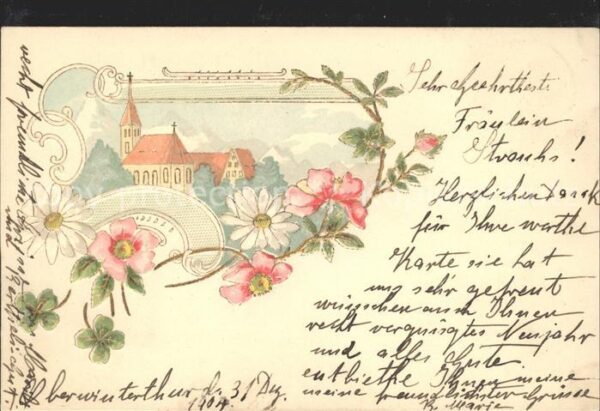 Sehr geehrteste
Fräulein
Strauhs!
Herzlichen Dank
für Ihre werthe
Karte sie hat
uns sehr gefreut
wünschen auch Ihnen
recht vergnügtes Neujahr
und alles Gute.
entbiethe Ihnen meine
meine freundlichster Grüsse
Marie
Oberwinterthur d. 31 Dez.
1904